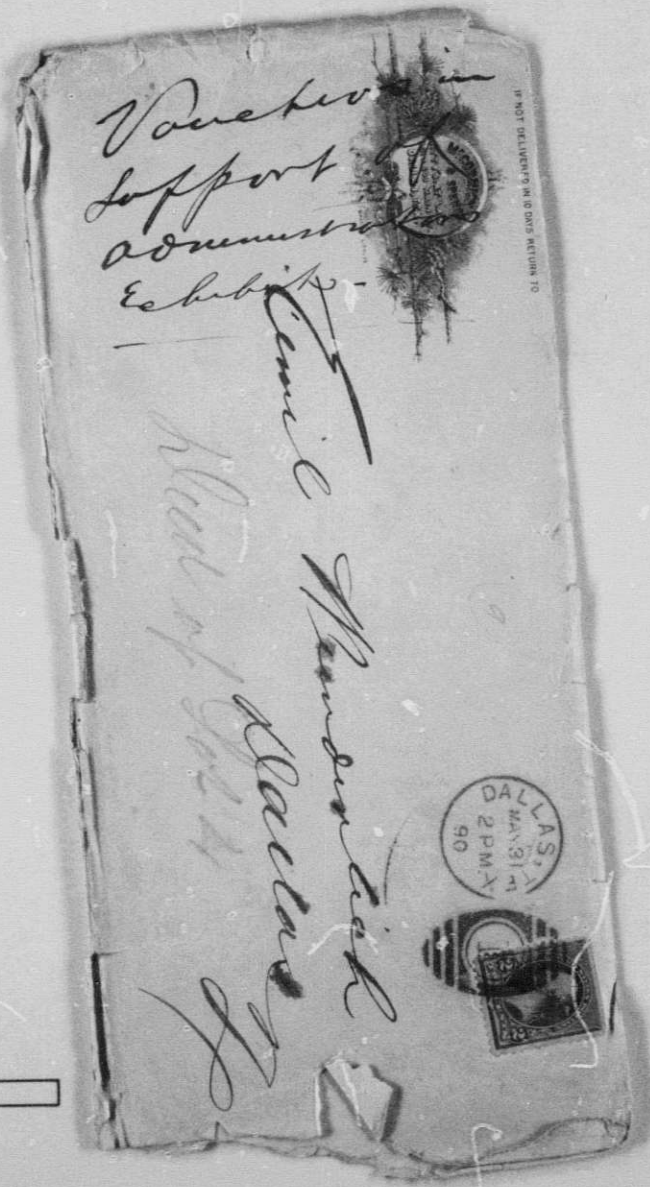 Vouchers in
support of
administrators
Exhibit -
IF NOT DELIVERED IN 10 DAYS RETURN TO
Emil Wunderlich
Dallas
Deed of
DALLAS, T
MAY 31
2 PM
90